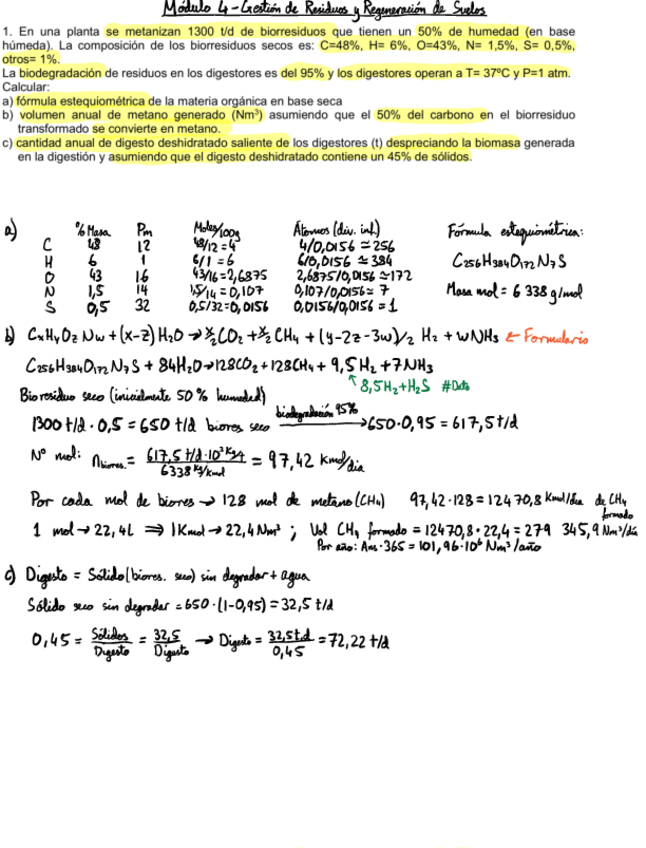 Módulo 4 - Gestión de Residuos y Regeneración de Suelos
1. En una planta se metanizan 1300 t/d de biorresiduos que tienen un 50% de humedad (en base
húmeda). La composición de los biorresiduos secos es: C=48%, H= 6%, O=43%, N= 1,5%, S= 0,5%,
otros= 1%.
La biodegradación de residuos en los digestores es del 95% y los digestores operan a T= 37ºC y P=1 atm.
Calcular:
a) fórmula estequiométrica de la materia orgánica en base seca
b) volumen anual de metano generado (Nm³) asumiendo que el 50% del carbono en el biorresiduo
transformado se convierte en metano.
c) cantidad anual de digesto deshidratado saliente de los digestores (t) despreciando la biomasa generada
en la digestión y asumiendo que el digesto deshidratado contiene un 45% de sólidos.
a) % Masa Pm Moles/100g Átomos (div. inf.) Fórmula estequiométrica:
C 48 12 48/12 = 4 4/0,0156 ≃ 256
H 6 1 6/1 = 6 6/0,0156 ≃ 384 C256H384O172N7S
O 43 16 43/16 = 2,6875 2,6875/0,0156 ≃ 172
N 1,5 14 1,5/14 = 0,107 0,107/0,0156 ≃ 7 Masa mol = 6 338 g/mol
S 0,5 32 0,5/32 = 0,0156 0,0156/0,0156 = 1
b) CxHyOzNw + (x-z) H2O → x/2 CO2 + x/2 CH4 + (y-2z-3w)/2 H2 + wNH3 ← Formulario
C256H384O172N7S + 84H2O → 128CO2 + 128CH4 + 9,5H2 + 7NH3
↑ 8,5H2 + H2S #Dato
Bioresiduo seco (inicialmente 50% humedad)
1300 t/d · 0,5 = 650 t/d biores seco biodegradación 95% → 650 · 0,95 = 617,5 t/d
Nº mol: nbiores. = 617,5 t/d · 10³ kg/t / 6338 kg/kmol = 97,42 Kmol/día
Por cada mol de biores → 128 mol de metano (CH4) 97,42 · 128 = 12470,8 Kmol/día de CH4 formado
1 mol → 22,4L ⇒ 1Kmol → 22,4 Nm³ ; Vol CH4 formado = 12470,8 · 22,4 = 279 345,9 Nm³/día
Por año: Ans · 365 = 101,96 · 10⁶ Nm³/año
c) Digesto = Sólido (biores. seco) sin degradar + agua
Sólido seco sin degradar = 650 · (1-0,95) = 32,5 t/d
0,45 = Sólidos / Digesto = 32,5 / Digesto → Digesto = 32,5 t/d / 0,45 = 72,22 t/d